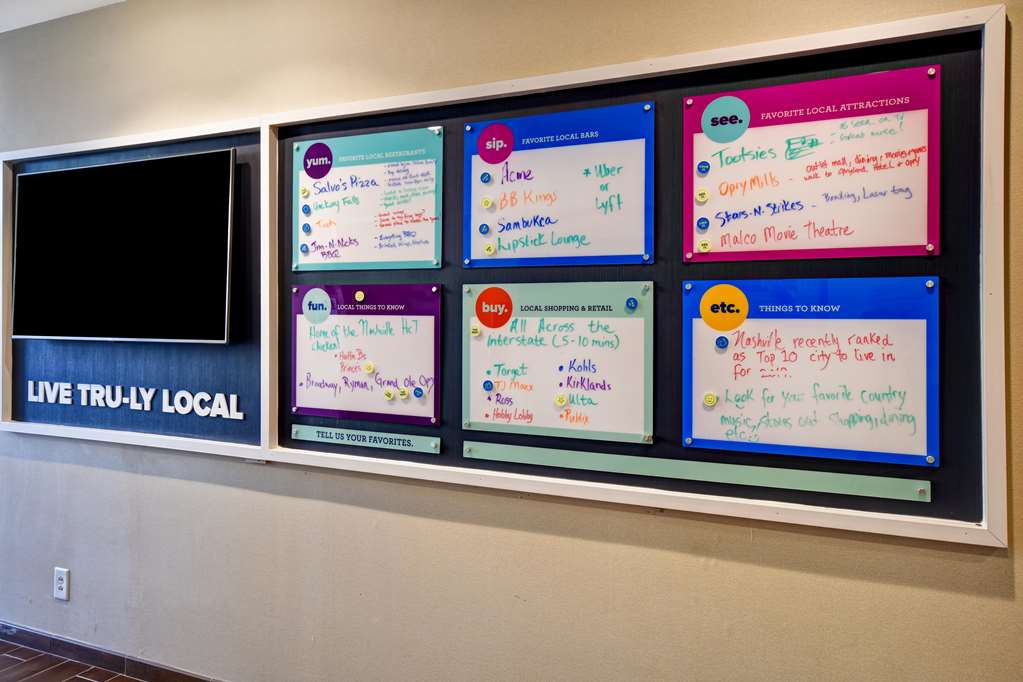 LIVE TRU-LY LOCAL
yum.
FAVORITE LOCAL RESTAURANTS
Salvo's Pizza
Uncle
Falls
Jim-N-Nicks
BBQ
Everything BBQ
sip.
FAVORITE LOCAL BARS
Acme
BB Kings
Sambuca
Lipstick Lounge
* Uber
or
Lyft
see.
FAVORITE LOCAL ATTRACTIONS
Tootsies
as seen on TV
Opry Mills
outlet mall, dining, movies, games
walk to Gaylord Hotel & Opry
Stars-N-Strikes - Bowling, Laser tag
Malco Movie Theatre
fun.
LOCAL THINGS TO KNOW
Home of the Nashville Hot
chicken!
• Hattie Bs
Princes
• Broadway, Ryman, Grand Ole Opry
buy.
LOCAL SHOPPING & RETAIL
All Across the
Interstate (5-10 mins)
• Target
TJ Maxx
• Ross
• Hobby Lobby
• Kohls
• Kirklands
Ulta
• Publix
etc.
THINGS TO KNOW
Nashville recently ranked
as Top 10 city to live in
for 2017.
Look for your favorite country
music, stores out shopping, dining
etc.
TELL US YOUR FAVORITES.